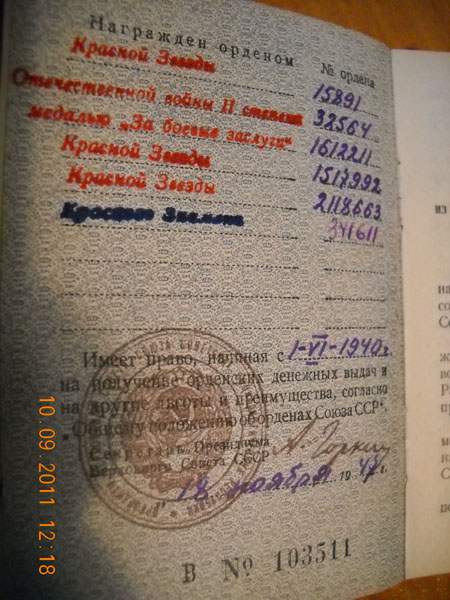 Награжден орденом № ордена
Красной Звезды 15891
Отечественной войны II степени 32564
медалью „За боевые заслуги“ 1612211
Красной Звезды 1517992
Красной Звезды 2118663
Красного Знамени 341611
Имеет право, начиная с 1-VI-1940 г.
на получение орденских денежных выдач и
на другие льготы и преимущества, согласно
„Общему положению об орденах Союза ССР“.
Секретарь Президиума
Верховного Совета СССР А. Горкин
18 ноября 1947 г.
В № 103511
из
на
Се
по
10.09.2011 12:18